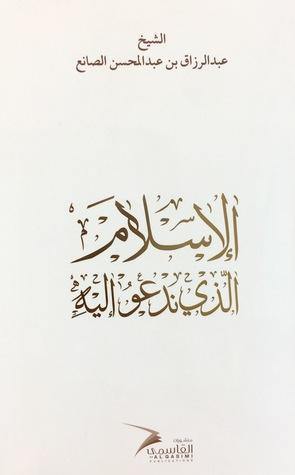 الشيخ
عبدالرزاق بن عبدالمحسن الصانع
الإسلام
الذي ندعو إليه
منشورات
القاسمي
AL QASIMI
PUBLICATIONS